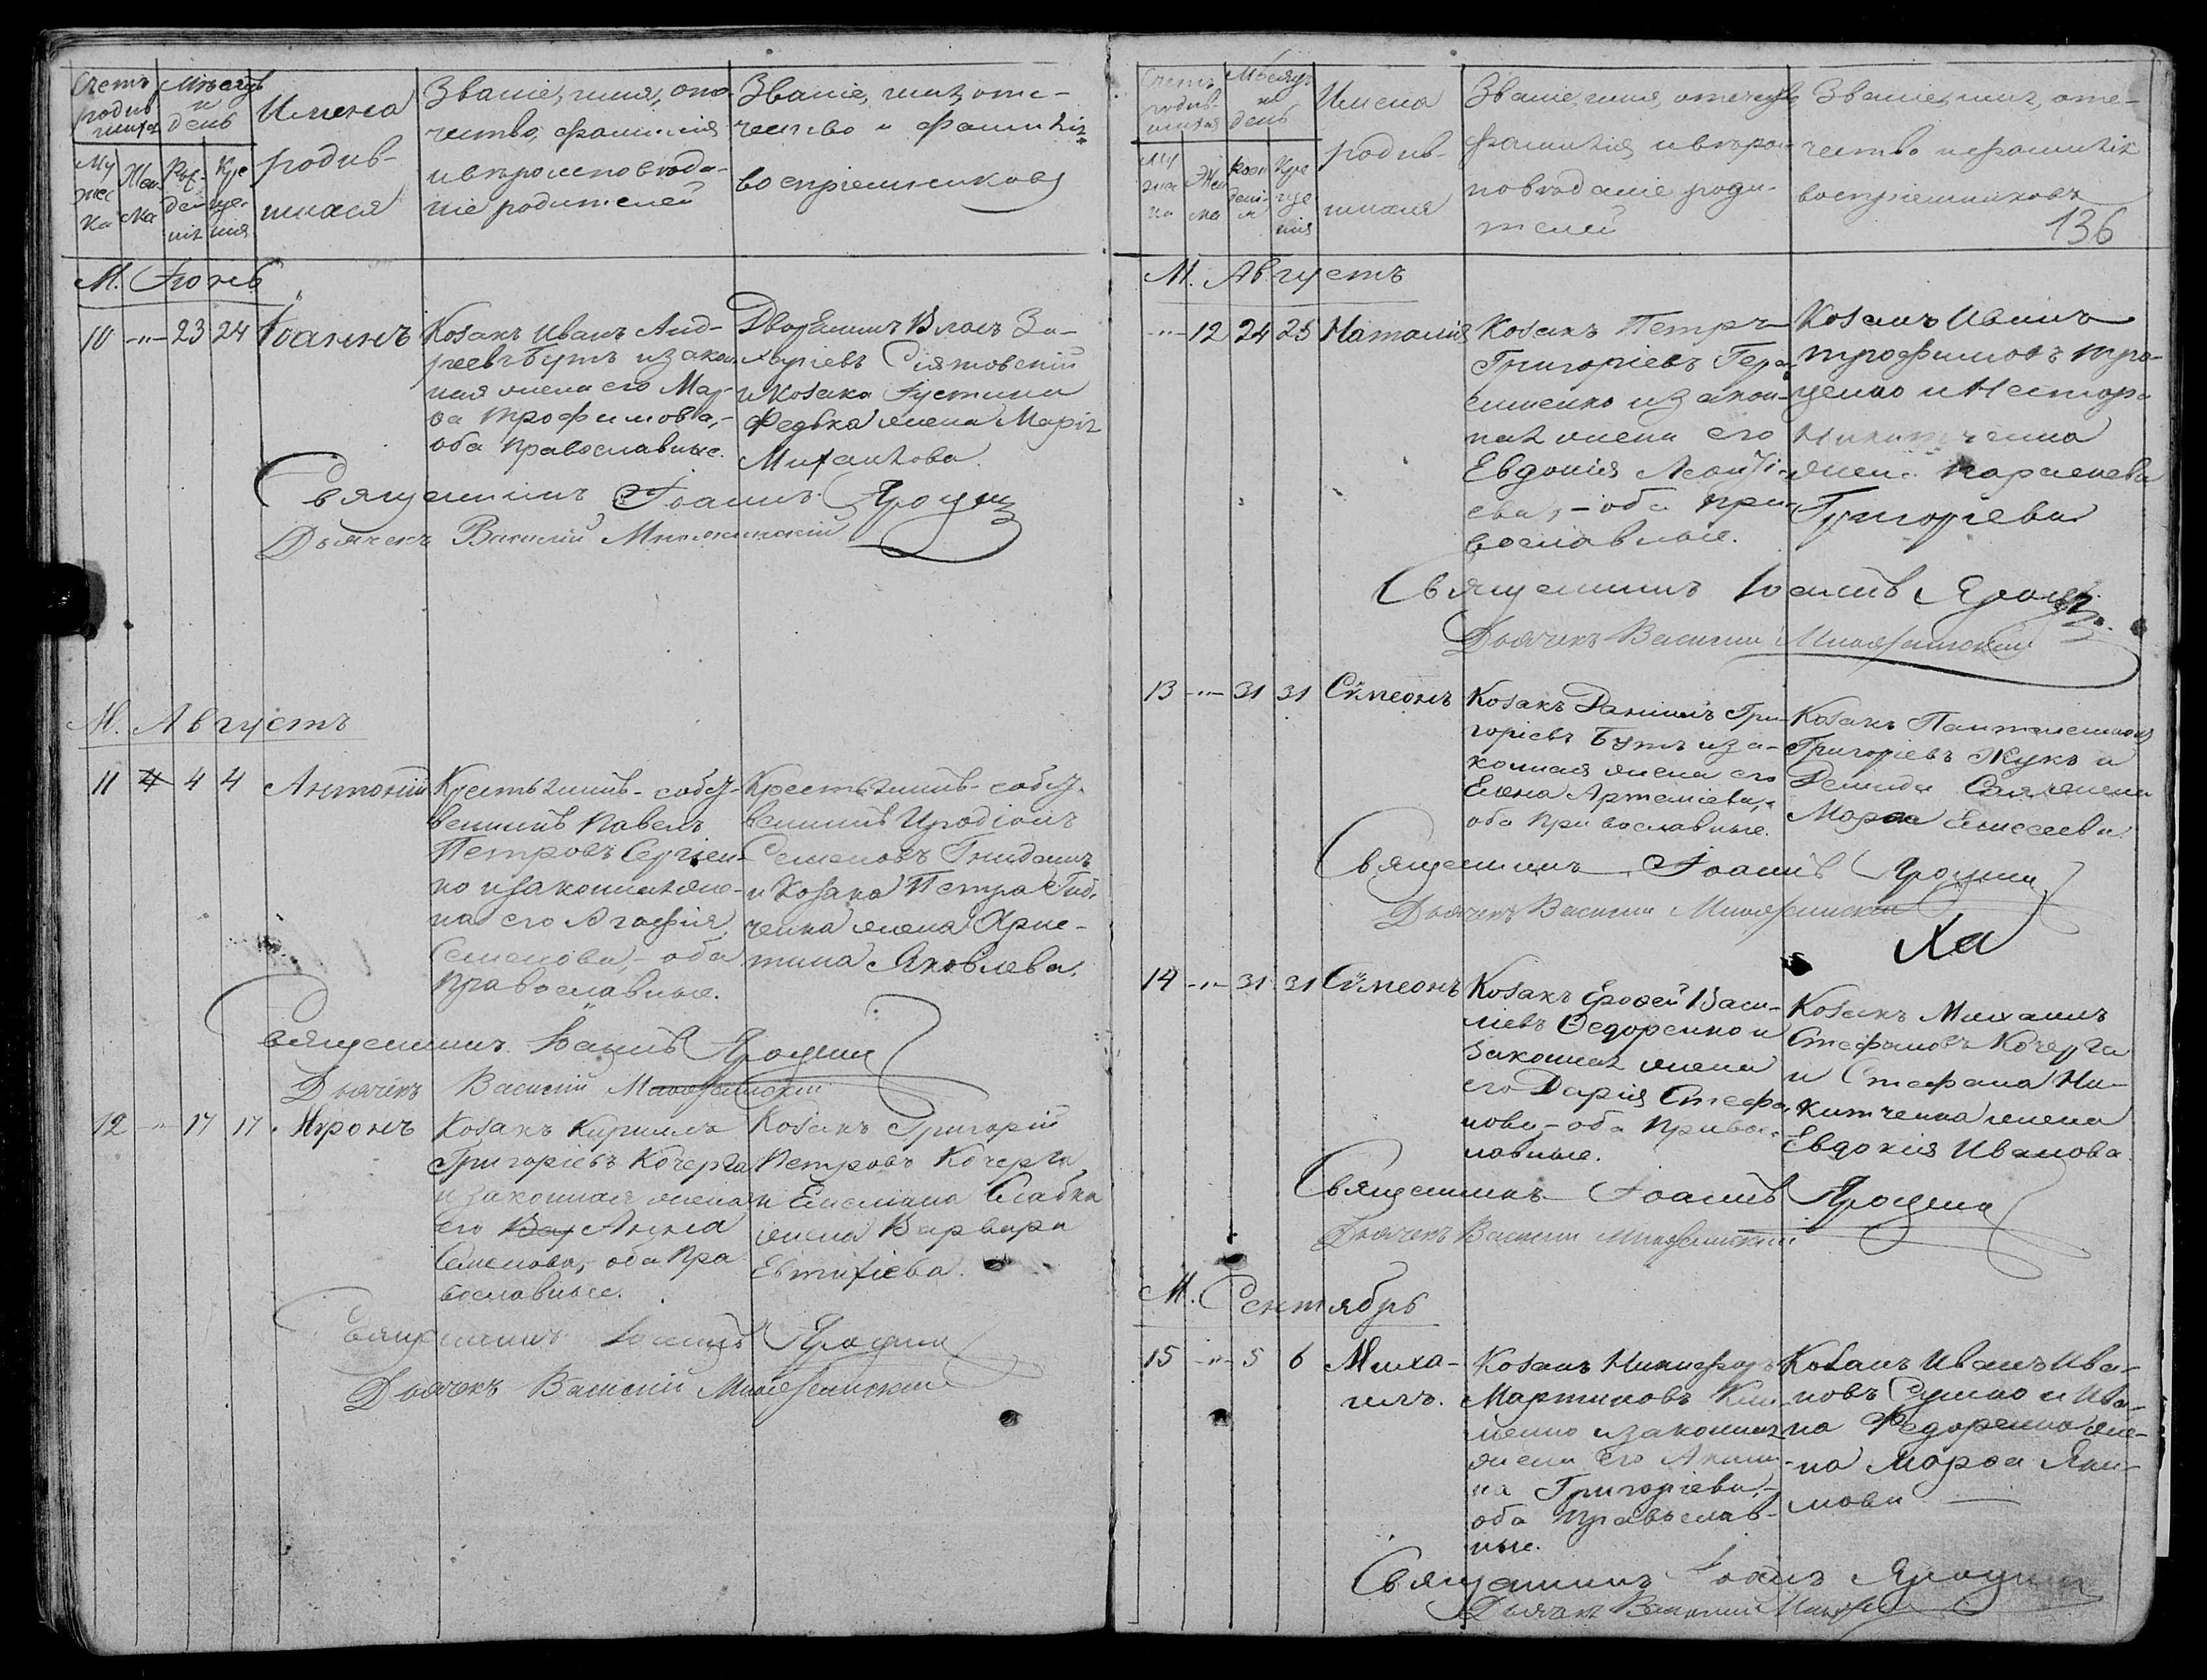 Счетъ родив-шихся
Мѣсяцъ и день
Имена родив-шихся
Званіе, имя, оте-
чество, фамилія
и вѣроисповѣда-
ніе родителей
Званіе, имя, оте-
чество и фамилія
воспріемниковъ
Му жес ка
Жен ска
Рож-денія
Кре ще-нія
М. Іюнь
10 -"- 23 24 Іоаннъ
Козакъ Иванъ Анд-
реевъ Бутъ и закон-
ная жена его Мар-
ѳа Трофимова,-
оба православные.
Дворянинъ Власъ За-
харіевъ
и козака Іустина
Федька жена Марія
Михайлова.
Священникъ Іоаннъ Ярощ
Дьячекъ Василій
М. Августъ
11 4 4 4 Антоній
Крестьянинъ-собст-
венникъ Павелъ
Петровъ Сергіен-
ко и законная же-
на его Агафія
Семенова,- оба
православные.
Крестьянинъ-собст-
венникъ Иродіонъ
Семеновъ
и козака Петра
ченка жена Хрис-
тина Яковлева.
Священникъ Іоаннъ Ярощ
Дьячекъ Василій
12 -"- 17 17 Миронъ
Козакъ Кириллъ
Григоріевъ Кочерга
и законная жена
его Вар Анна
Семенова, оба пра
вославные.
Козакъ Григорій
Петровъ Кочерга
и Емелiана Слабка
жена Варвара
Евтихіева.
Священникъ Іоаннъ Ярощ
Дьячекъ Василій
Счетъ родив-шихся
Мѣсяцъ и день
Имена родив-шихся
Званіе, имя, отечество
фамилія и вѣрои-
сповѣданіе роди-
телей
Званіе, имя, оте-
чество и фамилія
воспріемниковъ
136
Му жес ка
Жен ска
Рож денія
Кре ще нія
М. Августъ
-"- 12 24 25 Наталія
Козакъ Петръ
Григоріевъ Гера-
сименко и закон-
ная жена его
Евдокія Леонті-
ева,- оба пра-
вославные.
Козакъ Иванъ
Трофимовъ Тро-
ценко и Нестора
Никитченка
жена
Григоріева
Священникъ Іоаннъ Ярощ
Дьячекъ Василій
13 -"- 31 31 Сѵмеонъ
Козакъ Даніилъ Гри-
горіевъ Бутъ и за-
конная жена его
Елена Артеміева,-
оба православные.
Козакъ Пантелеимонъ
Григоріевъ Жукъ и
Демида жена
Марѳа Елисеева.
Священникъ Іоаннъ Ярощ
Дьячекъ Василій
Ха
14 -"- 31 31 Сѵмеонъ
Козакъ Ерофей Васи-
ліевъ Ѳедоренко и
законная жена
его Дарія Стефа-
нова,- оба правос-
лавные.
Козакъ Михаилъ
Стефановъ Кочерга
и Стефана Ни-
китченка жена
Евдокія Иванова.
Священникъ Іоаннъ Ярощ
Дьячекъ Василій
М. Сентябрь
15 -"- 5 6 Миха-
илъ.
Козакъ Никифоръ
Мартиновъ Кли-
менко и законная
жена его Акили-
на Григоріева,-
оба православ-
ные.
Козакъ Иванъ Ива-
новъ и Ива-
на Федоренка же-
на Марѳа Яки-
мова
Священникъ Іоаннъ Ярощ
Дьячекъ Василій